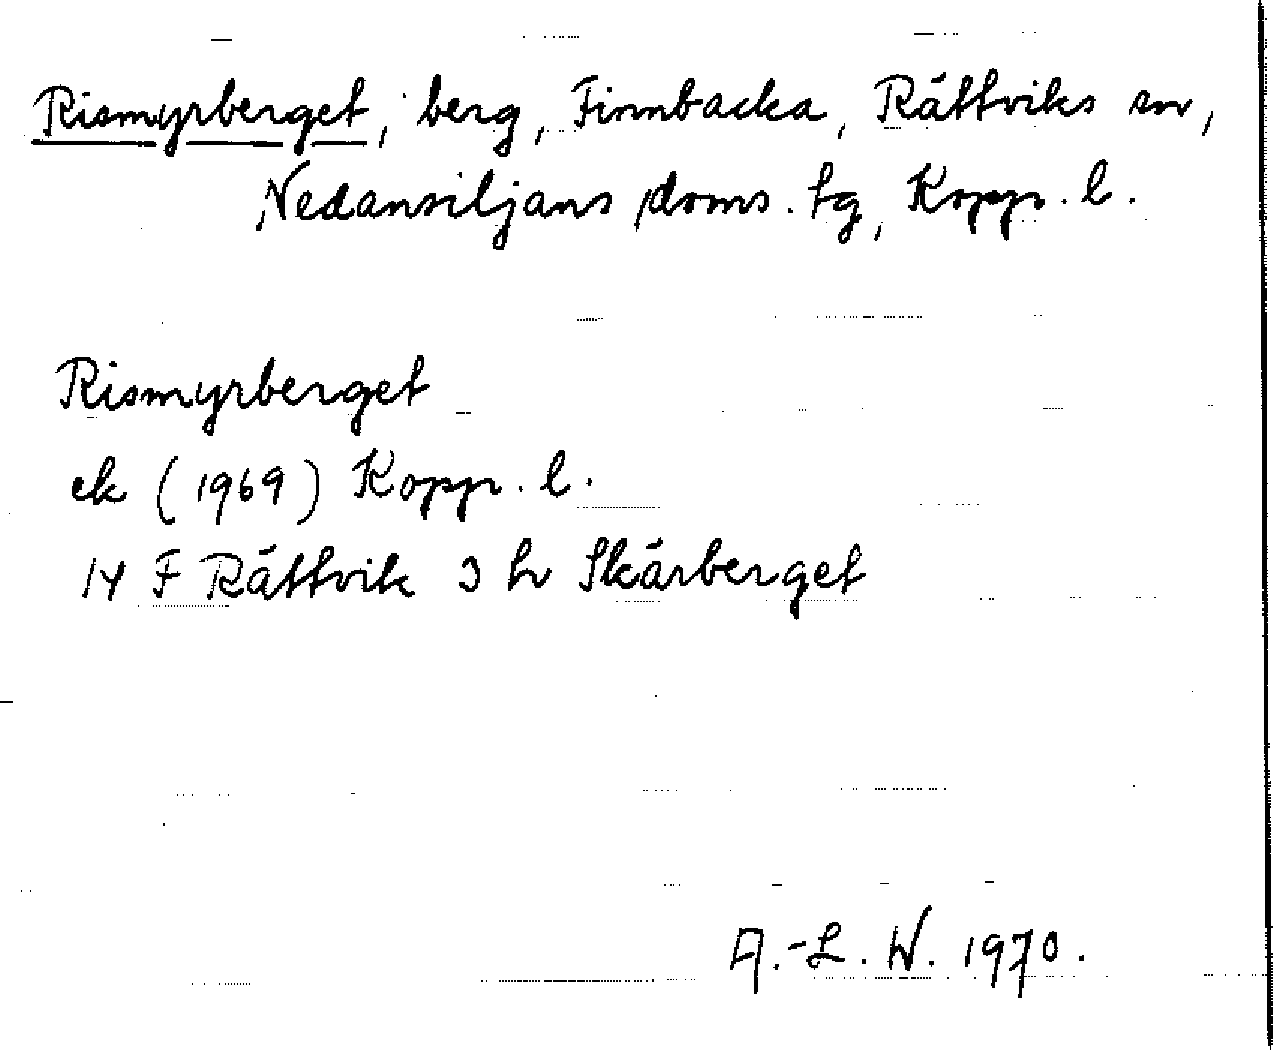 Rismyrberget, berg, Finnbacka, Rättviks sn,
Nedansiljans doms. tg, Kopp. l.
Rismyrberget
ek (1969) Kopp. l.
14 F Rättvik 3 h Skärberget
A.-L. W. 1970.